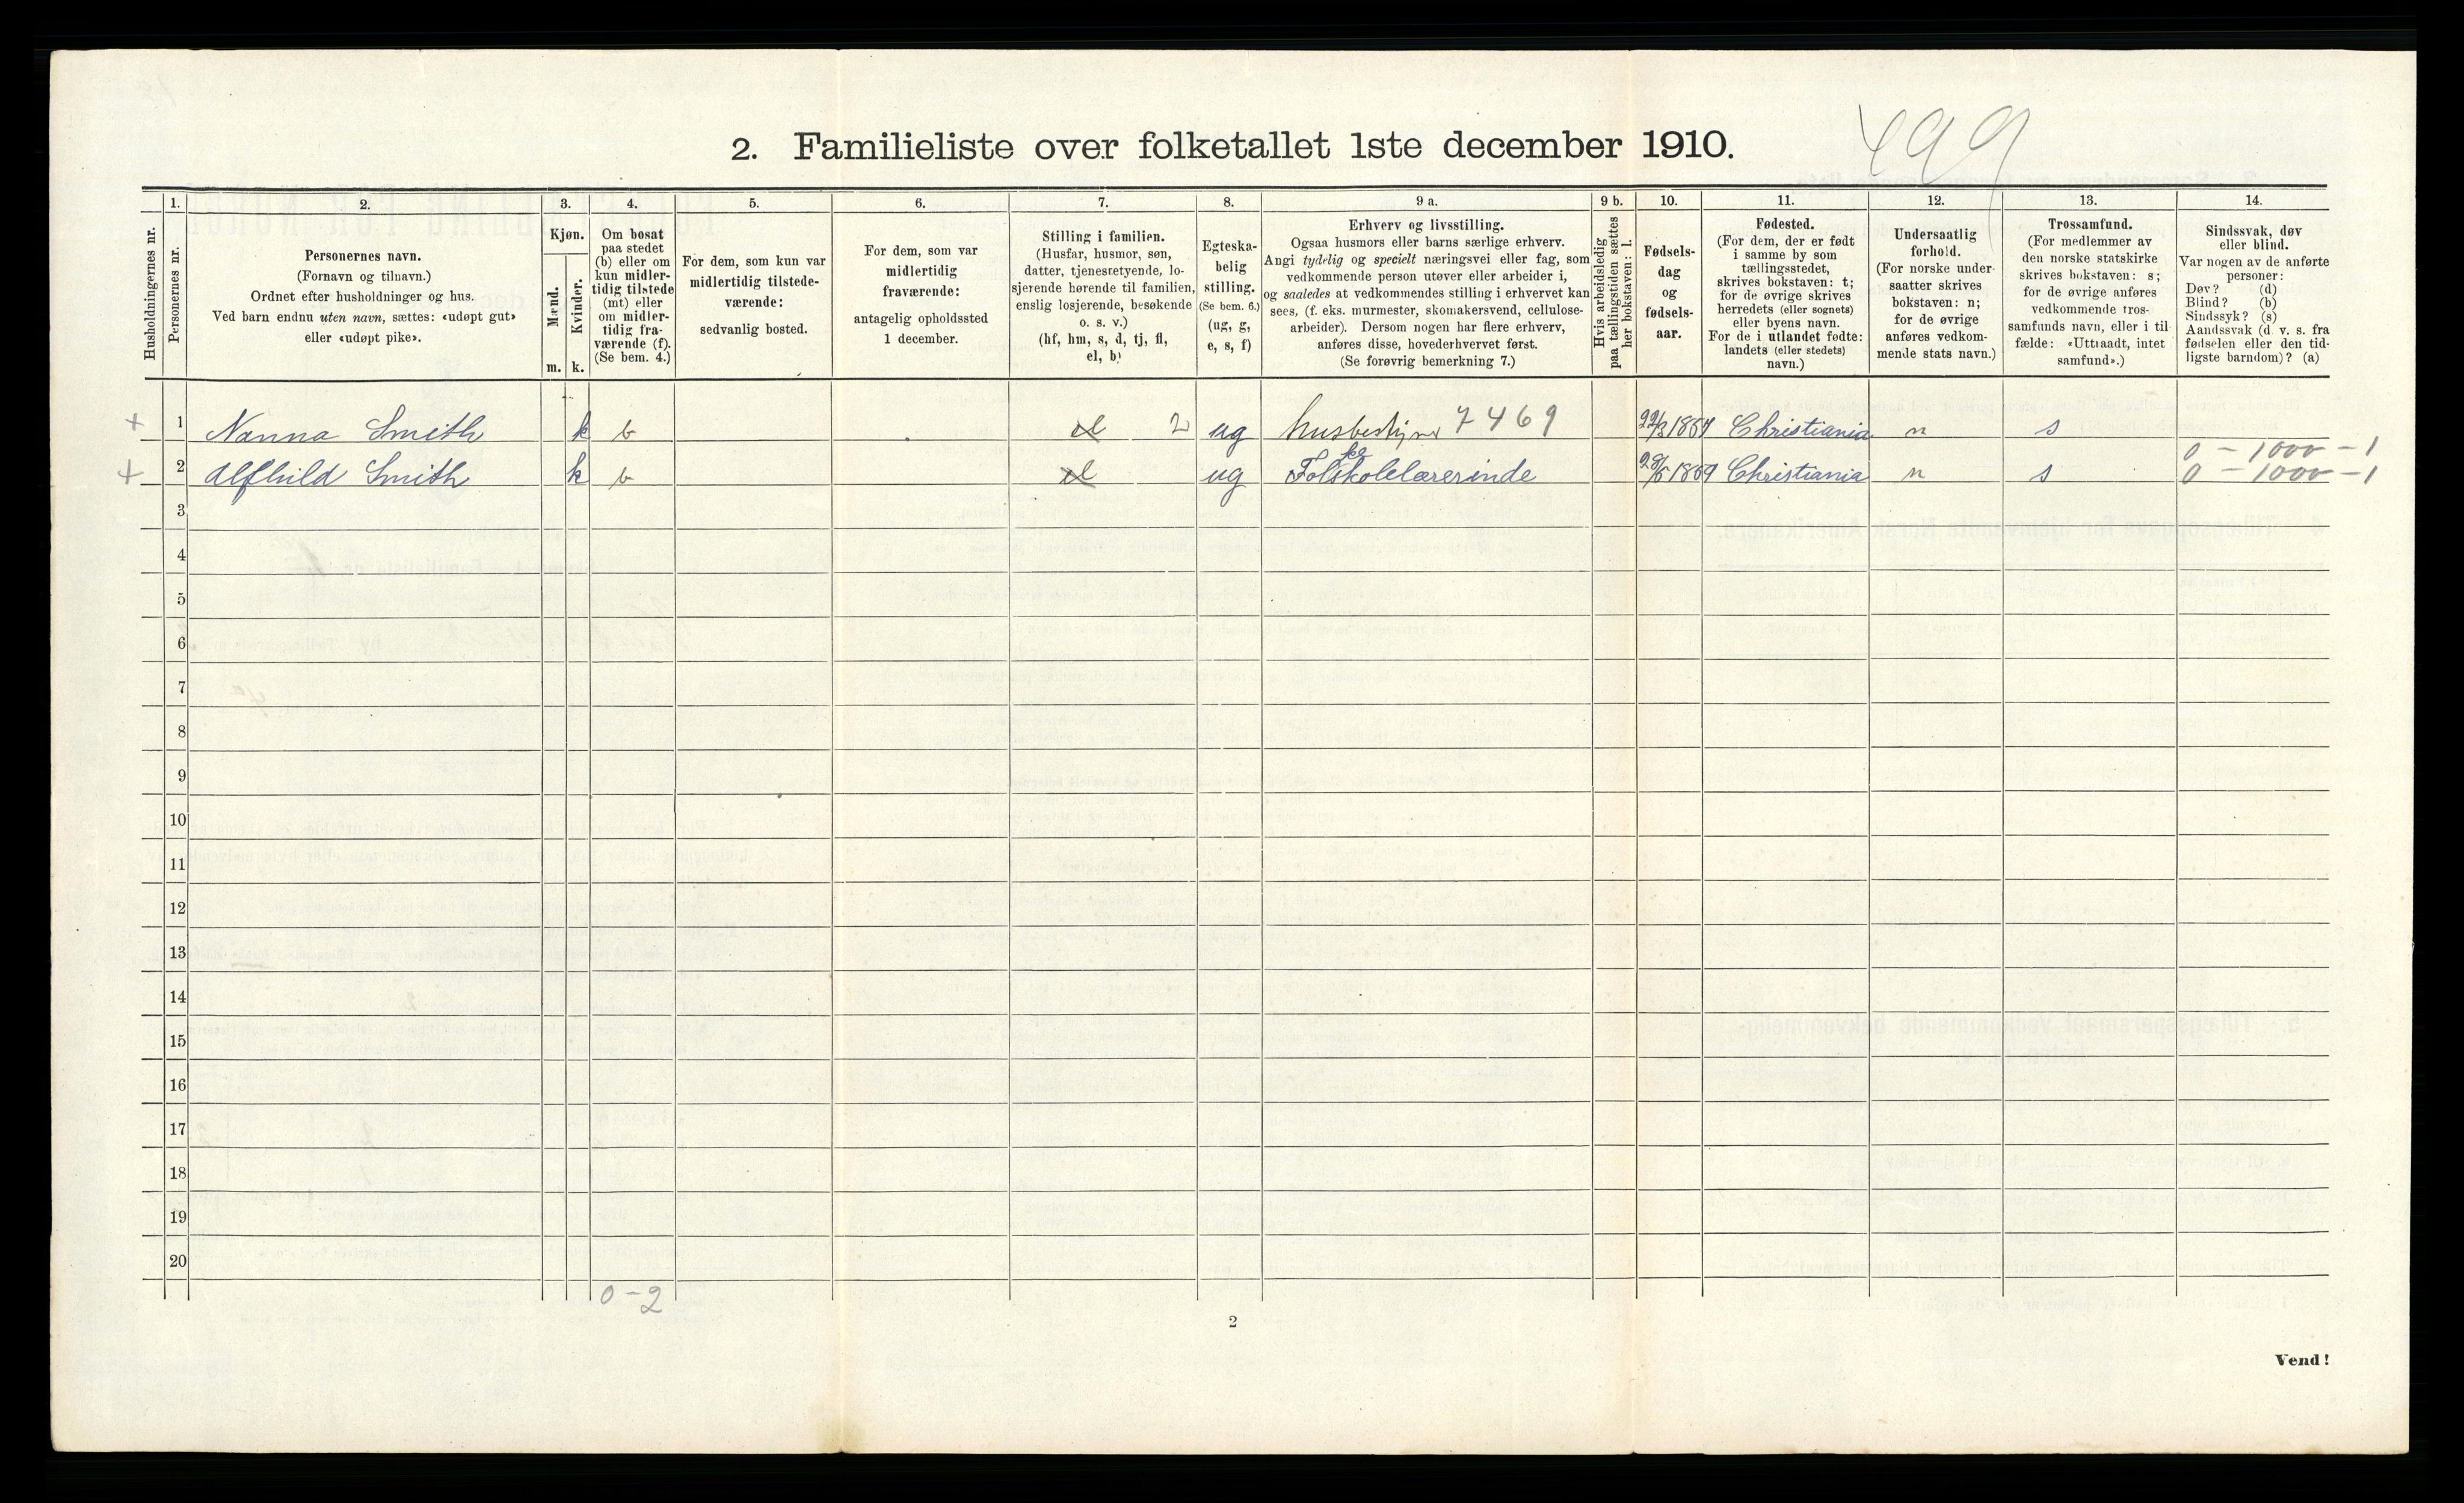 499
2. Familieliste over folketallet 1ste december 1910.
1. 2. 3. 4. 5. 6. 7. 8. 9 a. 9 b. 10. 11. 12. 13. 14.
Husholdningernes nr.
Personernes nr.
Personernes navn.
(Fornavn og tilnavn.)
Ordnet efter husholdninger og hus.
Ved barn endnu uten navn, sættes: «udøpt gut»
eller «udøpt pike».
Kjøn.
Mænd.
Kvinder.
m. k.
Om bosat
paa stedet
(b) eller om
kun midler-
tidig tilstede
(mt) eller
om midler-
tidig fra-
værende (f).
(Se bem. 4.)
For dem, som kun var
midlertidig tilstede-
værende:
sedvanlig bosted.
For dem, som var
midlertidig
fraværende:
antagelig opholdssted
1 december.
Stilling i familien.
(Husfar, husmor, søn,
datter, tjenestetyende, lo-
sjerende hørende til familien,
enslig losjerende, besøkende
o. s. v.)
(hf, hm, s, d, tj, fl,
el, b)
Egteska-
belig
stilling.
(Se bem. 6.)
(ug, g,
e, s, f)
Erhverv og livsstilling.
Ogsaa husmors eller barns særlige erhverv.
Angi tydelig og specielt næringsvei eller fag, som
vedkommende person utøver eller arbeider i,
og saaledes at vedkommendes stilling i erhvervet kan
sees, (f. eks. murmester, skomakersvend, cellulose-
arbeider). Dersom nogen har flere erhverv,
anføres disse, hovederhvervet først.
(Se forøvrig bemerkning 7.)
Hvis arbeidsledig
paa tællingstiden sættes
her bokstaven: l.
Fødsels-
dag
og
fødsels-
aar.
Fødested.
(For dem, der er født
i samme by som
tællingsstedet,
skrives bokstaven: t;
for de øvrige skrives
herredets (eller sognets)
eller byens navn.
For de i utlandet fødte:
landets (eller stedets)
navn.)
Undersaatlig
forhold.
(For norske under-
saatter skrives
bokstaven: n;
for de øvrige
anføres vedkom-
mende stats navn.)
Trossamfund.
(For medlemmer av
den norske statskirke
skrives bokstaven: s;
for de øvrige anføres
vedkommende tros-
samfunds navn, eller i til-
fælde: «Uttraadt, intet
samfund».)
Sindssvak, døv
eller blind.
Var nogen av de anførte
personer:
Døv? (d)
Blind? (b)
Sindssyk? (s)
Aandssvak (d. v. s. fra
fødselen eller den tid-
ligste barndom)? (a)
+ 1 Nanna Smith k b el 2 ug husbestyrer 7469 Christiania n s
0 - 1000 - 1
+ 2 Alfhild Smith k b el ug Folkeskolelærerinde Christiania n s 0 - 1000 - 1
3
4
5
6
7
8
9
10
11
12
13
14
15
16
17
18
19
20
0 - 2
2
Vend!